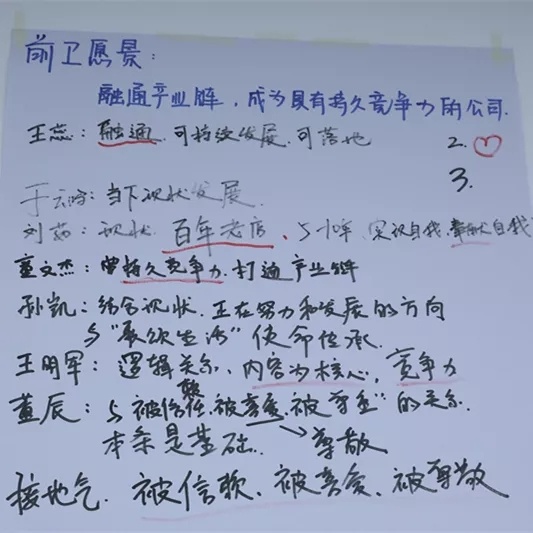 前卫愿景：
融通产业链，成为具有持久竞争力的公司.
王蕊：融通.可持续发展.可落地
2.♡
3.
于云：当下现状发展.
刘药：现状.百年老店、5-10年.实现自我.奉献自我
童文杰：曾持久竞争力.打通产业链
孙凯：结合现状.正在努力和发展的方向
与"景颂生活"使命传承.
王明军：逻辑关系、内容为核心，竞争力
董辰：与被信任.被喜爱.被尊重"的关系.
本条是基础. →尊敬
接地气.被信歌、被喜爱、被尊敬